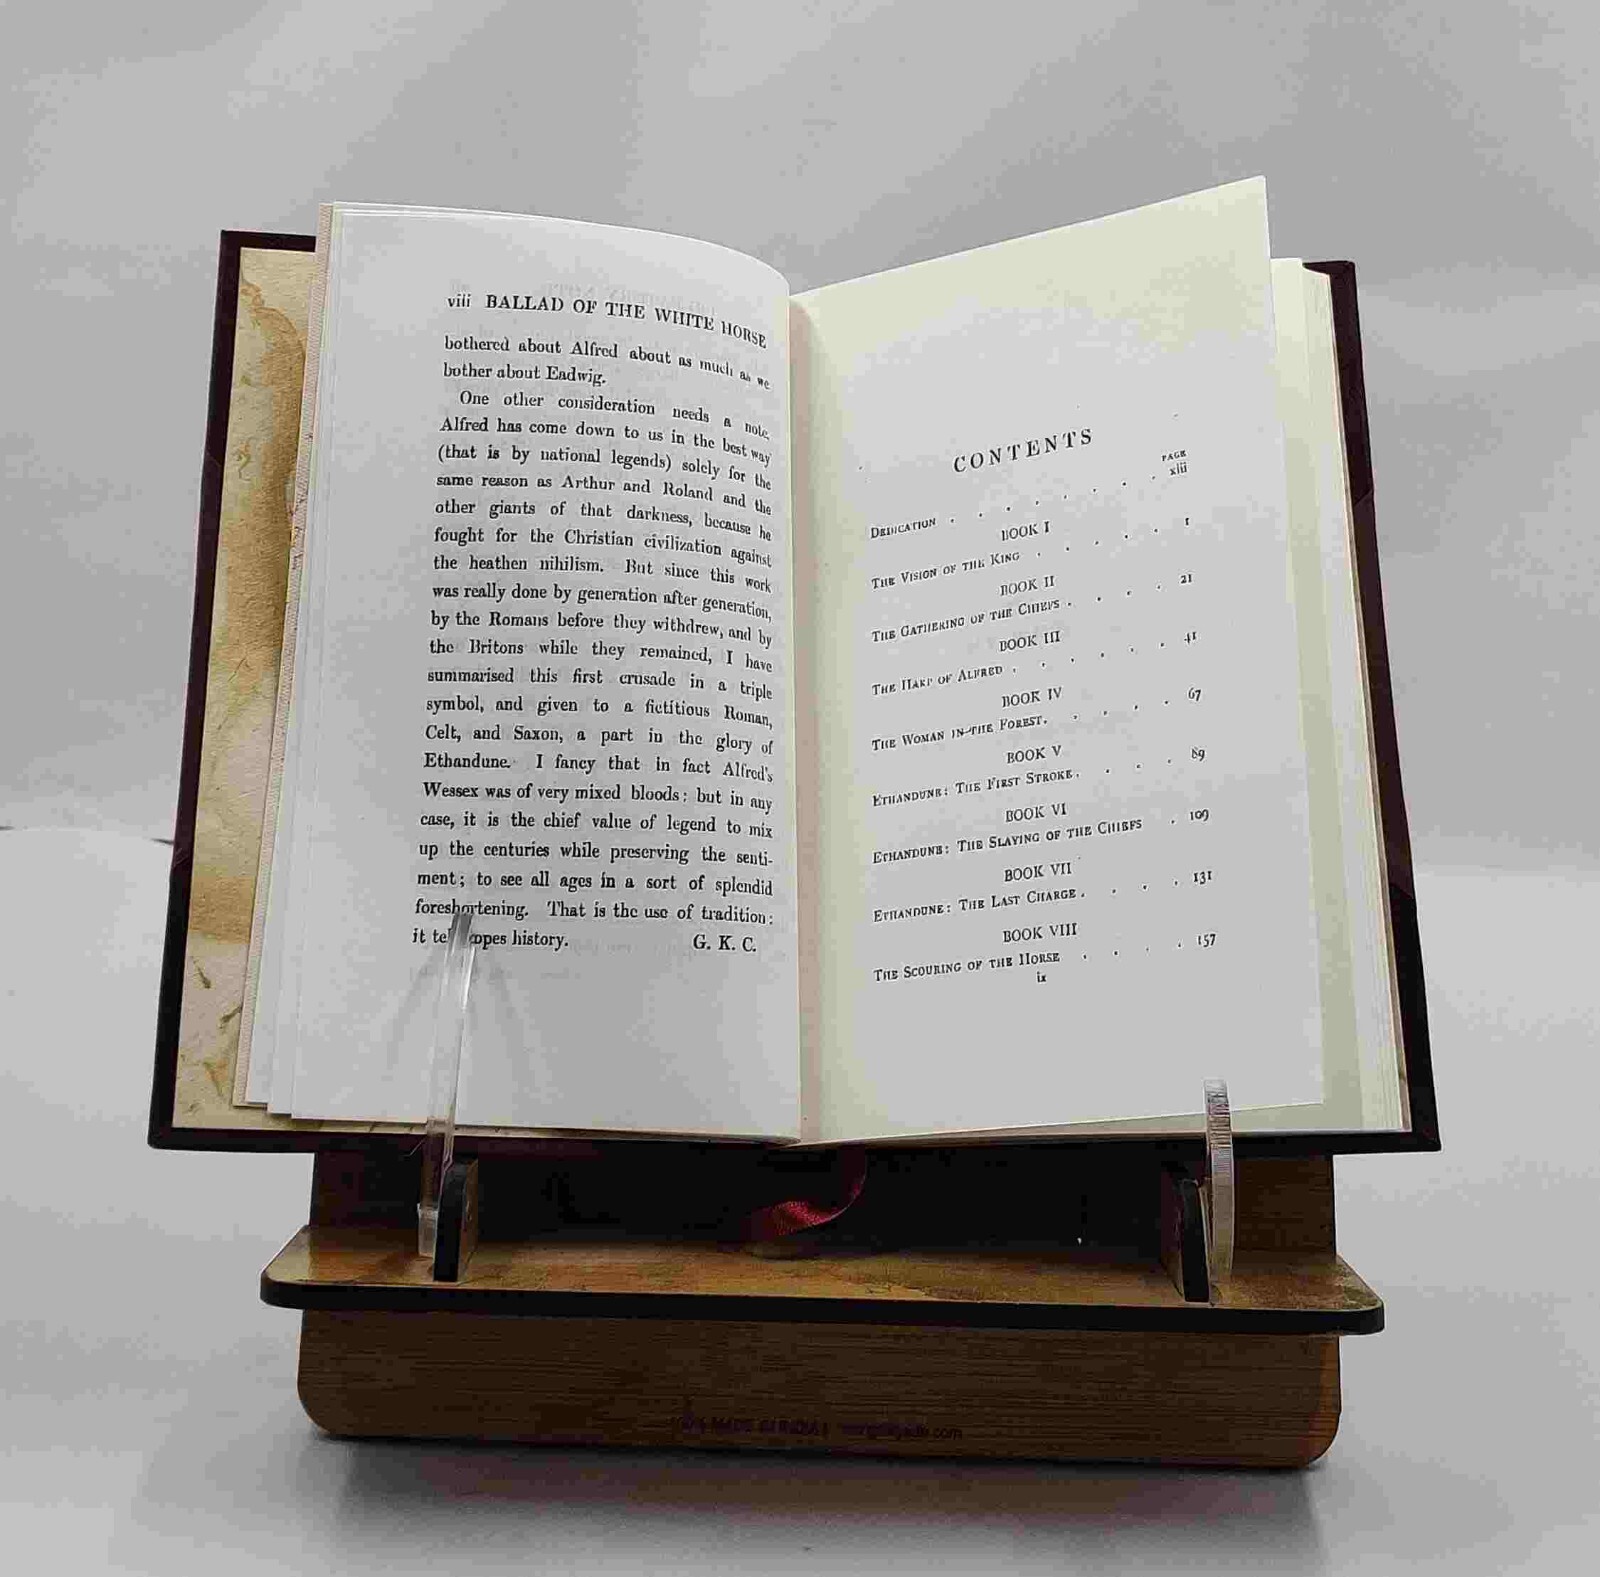 viii BALLAD OF THE WHITE HORSE
bothered about Alfred about as much as we
bother about Eadwig.
One other consideration needs a note.
Alfred has come down to us in the best way
(that is by national legends) solely for the
same reason as Arthur and Roland and the
other giants of that darkness, because he
fought for the Christian civilization against
the heathen nihilism. But since this work
was really done by generation after generation,
by the Romans before they withdrew, and by
the Britons while they remained, I have
summarised this first crusade in a triple
symbol, and given to a fictitious Roman,
Celt, and Saxon, a part in the glory of
Ethandune. I fancy that in fact Alfred's
Wessex was of very mixed bloods; but in any
case, it is the chief value of legend to mix
up the centuries while preserving the senti-
ment; to see all ages in a sort of splendid
foreshortening. That is the use of tradition:
it telescopes history. G. K. C.
CONTENTS
PAGE
DEDICATION . . . . . . . . xiii
BOOK I
THE VISION OF THE KING . . . . . 1
BOOK II
THE GATHERING OF THE CHIEFS . . . . 21
BOOK III
THE HARP OF ALFRED . . . . . . 41
BOOK IV
THE WOMAN IN THE FOREST. . . . . 67
BOOK V
ETHANDUNE: THE FIRST STROKE. . . . 89
BOOK VI
ETHANDUNE: THE SLAYING OF THE CHIEFS . 109
BOOK VII
ETHANDUNE: THE LAST CHARGE. . . . 131
BOOK VIII
THE SCOURING OF THE HORSE . . . . 157
ix